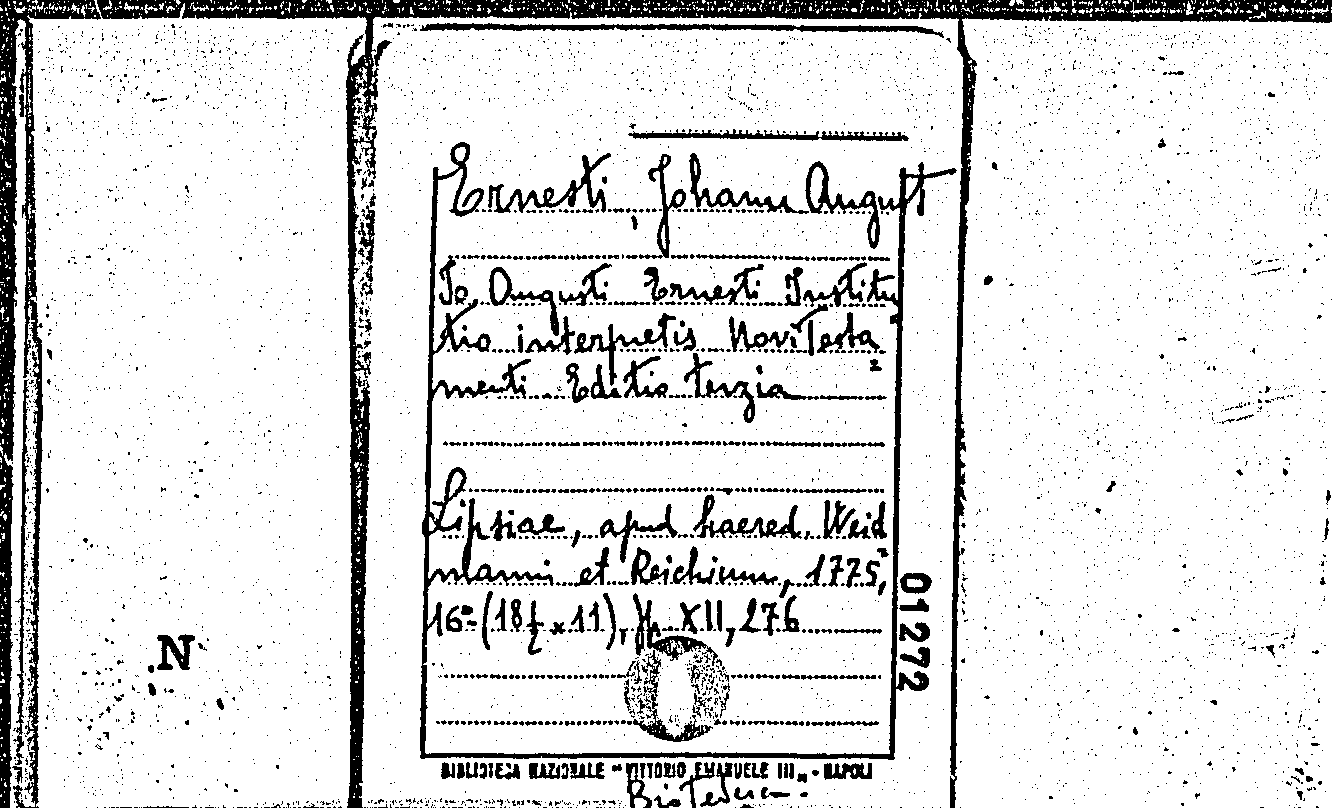 Ernesti, Johann August
Jo. Augusti Ernesti Institu
tio interpretis Novi Testa=
menti. Editio terzia
Lipsiae, apud haered. Weid=
manni et Reichium, 1775,
16°-(18½ x 11), pp. XII, 276
N
01272
BIBLIOTECA NAZIONALE - VITTORIO EMANUELE III - NAPOLI